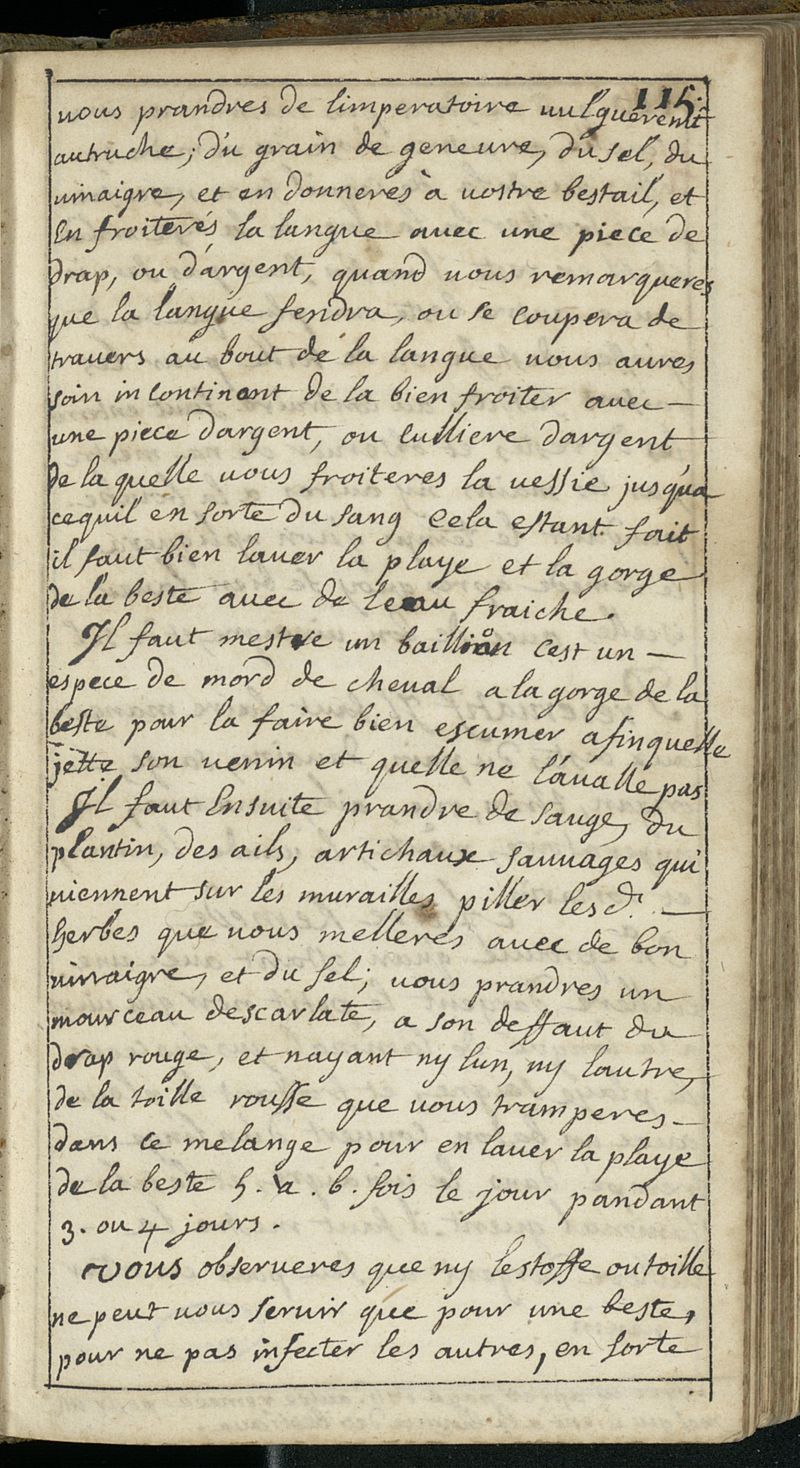 115.
vous prandres de limperatoire vulgueremt
autruche, du grain de genevre, du sel, du
vinaigre, et en donneres à vostre bestail, et
En froiterés la langue avec une piece de
drap, ou d'argent, quand vous remarqueres
que la langue fendra, ou se coupera de
travers au bout de la langue vous aures
soin incontinant de la bien froiter avec —
une piece dargent, ou culliere dargent
de la quelle vous froiteres la vessie jusqua
cequil en sorte du sang Cela estant fait
il faut bien laver la playe et la gorge
de la beste avec de leau fraiche.
Il faut mestre un baillion cest un —
espece de mord de cheval a la gorge de la
beste pour la faire bien escumer afinquelle
jette son venin et quelle ne l'avalle pas
Il faut Ensuite prandre de sauge, du
plantin, des ails, artichaux sauvages qui
viennent sur les murailles piller les d. —
herbes que vous melleres avec de bon
vinaigre, et du sel; vous prandres un
mourceau descarlate, a son deffaut du
drap rouge, et nayant ny lun, ny lautre,
de la toille rousse que vous tramperes —
dans ce melange pour en laver la playe
de la beste 5. a. 6. fois le jour pandant
3. ou 4 jours.
Vous observeres que ny lestoffe ou toille
ne peut vous servir que pour une beste,
pour ne pas infecter les autres, en sorte